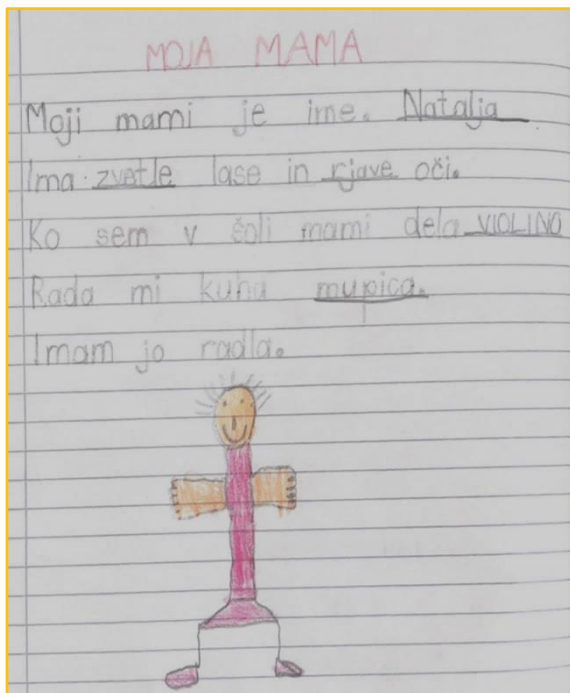 MOJA MAMA
Moji mami je ime. Natalja
Ima zvetle lase in rjave oči.
Ko sem v šoli mami dela VIOLINO
Rada mi kuha mupica.
Imam jo radla.